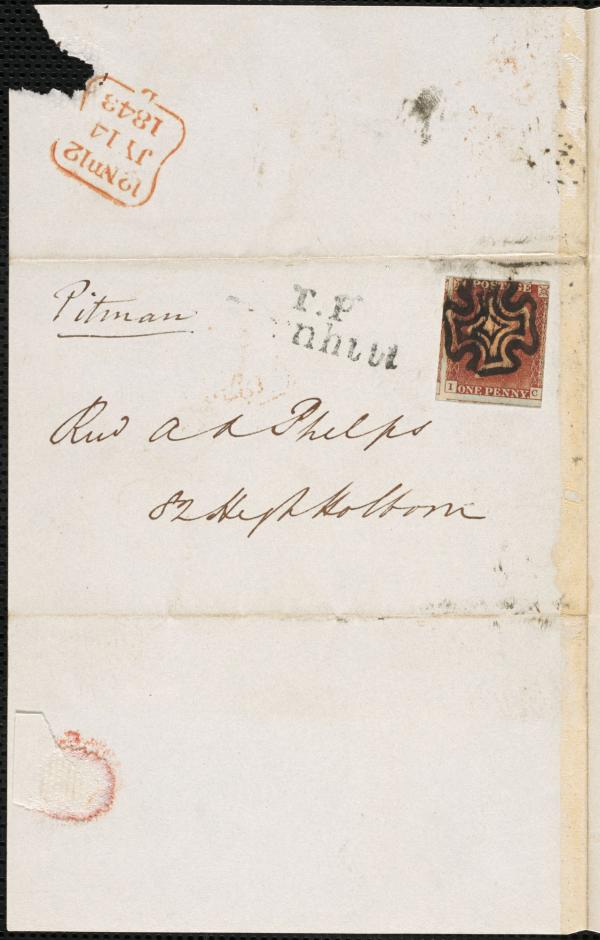 L
1843
JY 14
12NN12
Pitman
T.P
POSTAGE
I ONE PENNY C
Revd A A Phelps
82 High Holborn